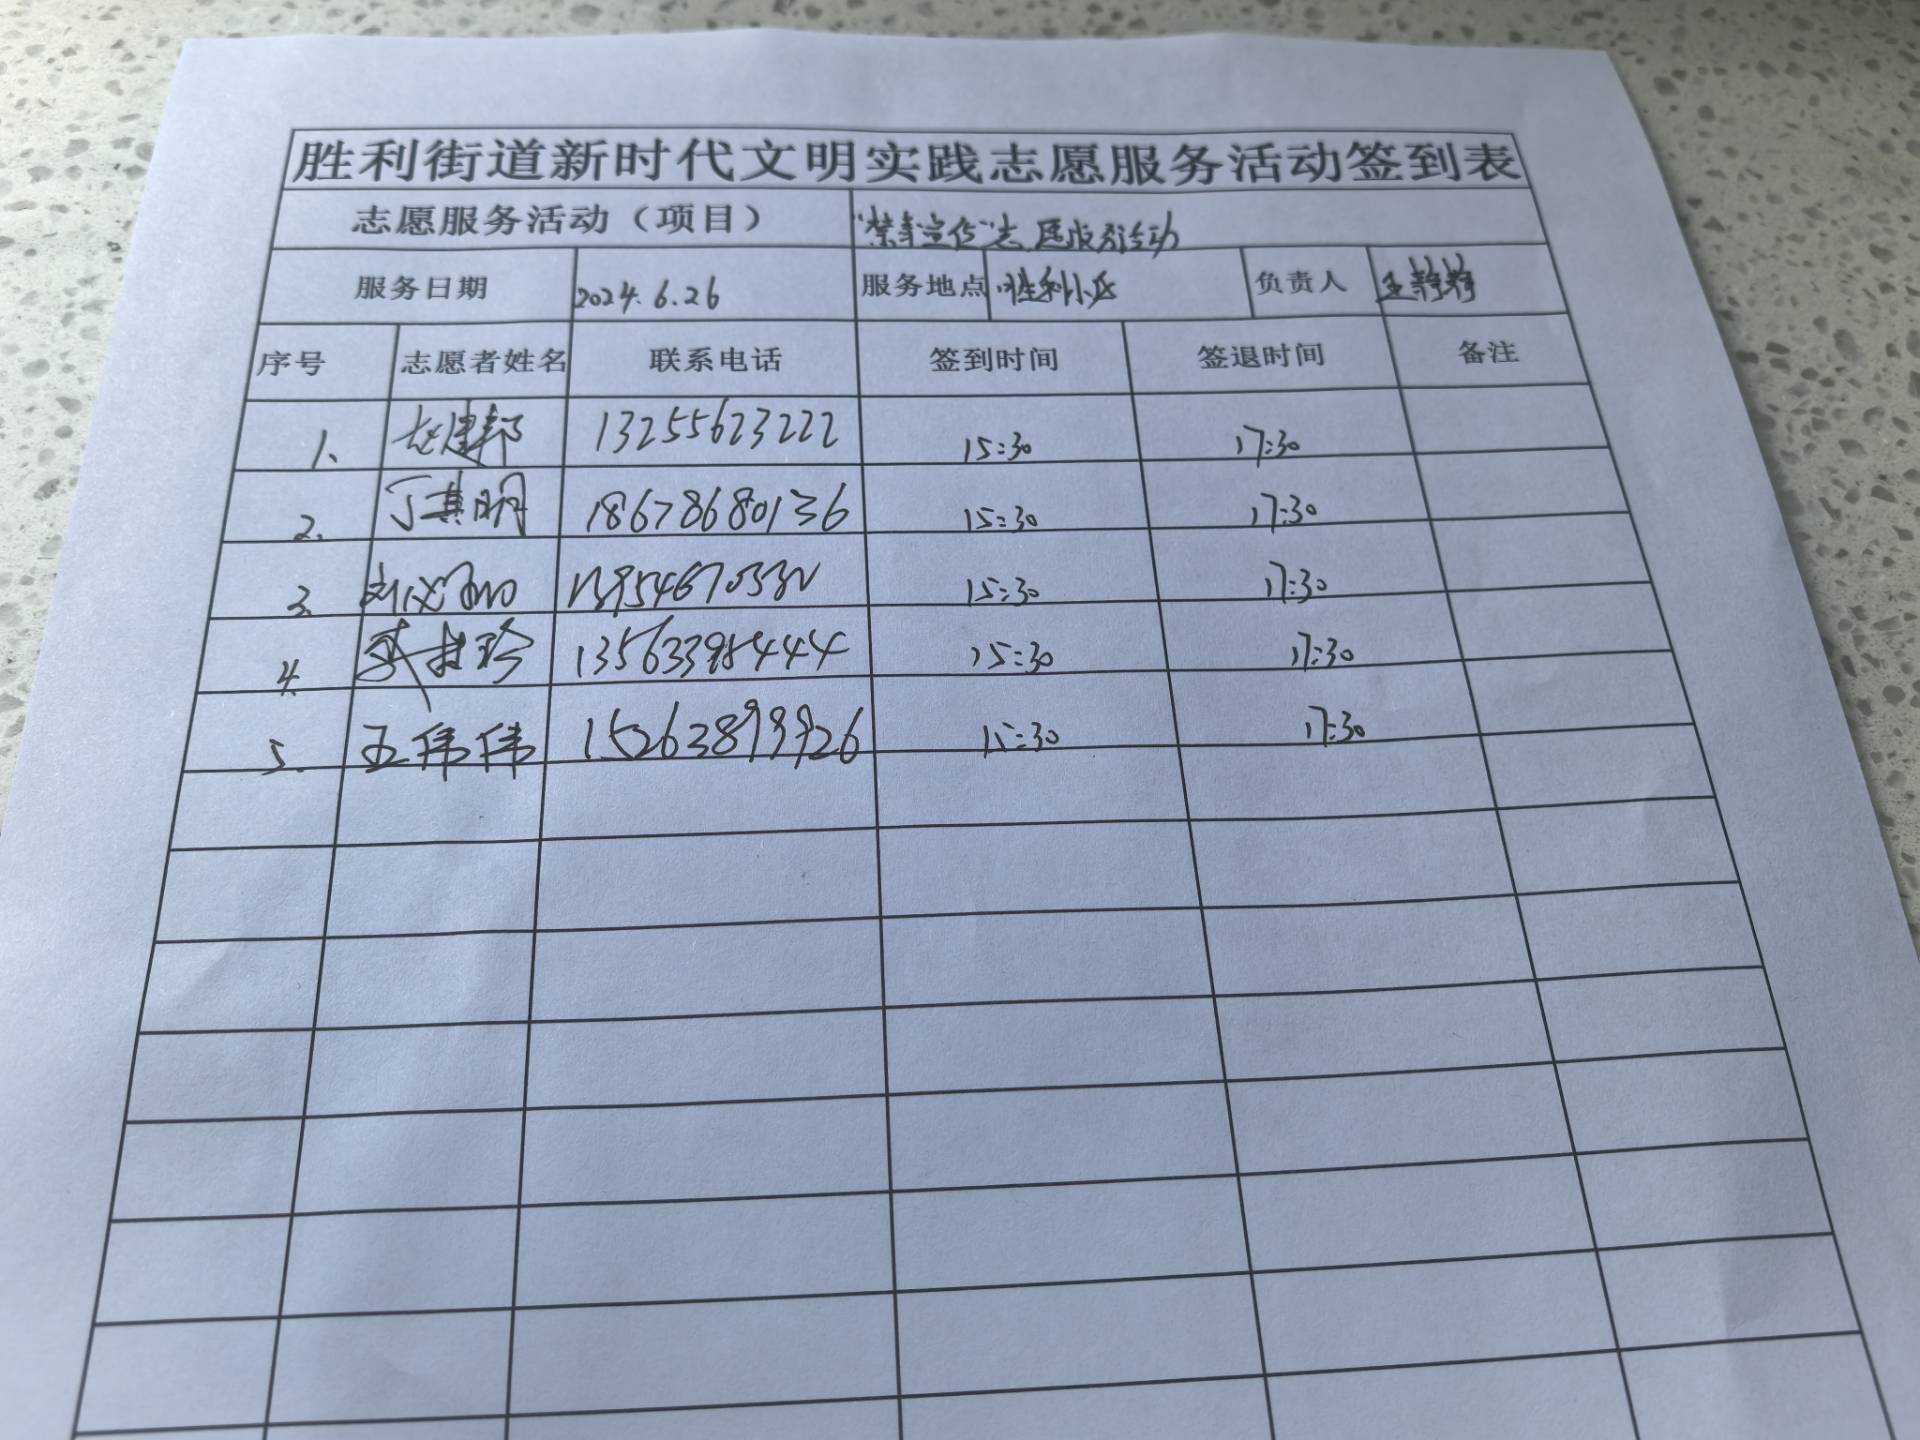 胜利街道新时代文明实践志愿服务活动签到表
志愿服务活动（项目） “禁毒宣传”志愿服务活动
服务日期 2024.6.26 服务地点 胜利小区 负责人 王静静
序号 志愿者姓名 联系电话 签到时间 签退时间 备注
1. 赵建邦 13255623222 15:30 17:30
2. 丁其明 18678680136 15:30 17:30
3. 15:30 17:30
4. 15:30 17:30
5. 王伟伟 15263899926 15:30 17:30